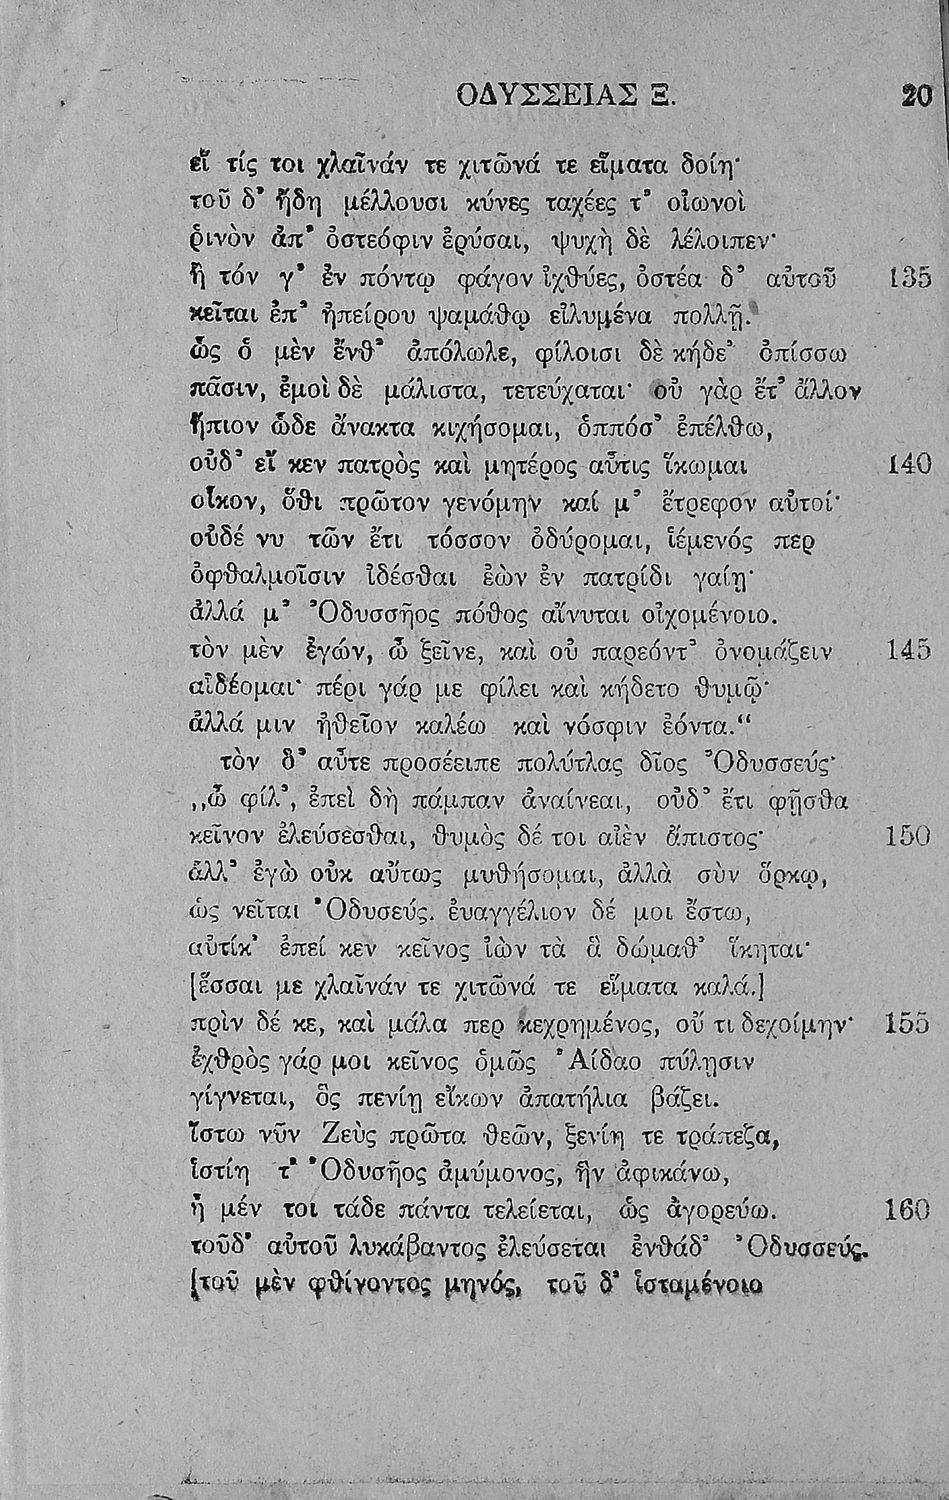 ΟΔΥΣΣΕΙΑΣ Ξ. 20
εἴ τίς τοι χλαῖνάν τε χιτῶνά τε εἵματα δοίη·
τοῦ δ’ ἤδη μέλλουσι κύνες ταχέες τ’ οἰωνοὶ
ῥινὸν ἀπ’ ὀστεόφιν ἐρύσαι, ψυχὴ δὲ λέλοιπεν·
ἢ τόν γ’ ἐν πόντῳ φάγον ἰχθύες, ὀστέα δ’ αὐτοῦ 135
κεῖται ἐπ’ ἠπείρου ψαμάθῳ εἰλυμένα πολλῇ.
ὣς ὁ μὲν ἔνθ’ ἀπόλωλε, φίλοισι δὲ κήδε’ ὀπίσσω
πᾶσιν, ἐμοὶ δὲ μάλιστα, τετεύχαται· οὐ γὰρ ἔτ’ ἄλλον
ἤπιον ὧδε ἄνακτα κιχήσομαι, ὁππόσ’ ἐπέλθω,
οὐδ’ εἴ κεν πατρὸς καὶ μητέρος αὖτις ἵκωμαι 140
οἶκον, ὅθι πρῶτον γενόμην καί μ’ ἔτρεφον αὐτοί·
οὐδέ νυ τῶν ἔτι τόσσον ὀδύρομαι, ἱέμενός περ
ὀφθαλμοῖσιν ἰδέσθαι ἐὼν ἐν πατρίδι γαίῃ·
ἀλλά μ’ Ὀδυσσῆος πόθος αἴνυται οἰχομένοιο.
τὸν μὲν ἐγών, ὦ ξεῖνε, καὶ οὐ παρεόντ’ ὀνομάζειν 145
αἰδέομαι· πέρι γάρ με φίλει καὶ κήδετο θυμῷ·
ἀλλά μιν ἠθεῖον καλέω καὶ νόσφιν ἐόντα.“
τὸν δ’ αὖτε προσέειπε πολύτλας δῖος Ὀδυσσεύς·
„ὦ φίλ’, ἐπεὶ δὴ πάμπαν ἀναίνεαι, οὐδ’ ἔτι φῇσθα
κεῖνον ἐλεύσεσθαι, θυμὸς δέ τοι αἰὲν ἄπιστος· 150
ἀλλ’ ἐγὼ οὐκ αὔτως μυθήσομαι, ἀλλὰ σὺν ὅρκῳ,
ὡς νεῖται Ὀδυσεύς. ἐυαγγέλιον δέ μοι ἔστω,
αὐτίκ’ ἐπεί κεν κεῖνος ἰὼν τὰ ἃ δώμαθ’ ἵκηται·
[ἕσσαι με χλαῖνάν τε χιτῶνά τε εἵματα καλά.]
πρὶν δέ κε, καὶ μάλα περ κεχρημένος, οὔ τι δεχοίμην· 155
ἐχθρὸς γάρ μοι κεῖνος ὁμῶς Ἀίδαο πύλῃσιν
γίγνεται, ὃς πενίῃ εἴκων ἀπατήλια βάζει.
ἴστω νῦν Ζεὺς πρῶτα θεῶν, ξενίη τε τράπεζα,
ἱστίη τ’ Ὀδυσῆος ἀμύμονος, ἣν ἀφικάνω,
ἦ μέν τοι τάδε πάντα τελείεται, ὡς ἀγορεύω. 160
τοῦδ’ αὐτοῦ λυκάβαντος ἐλεύσεται ἐνθάδ’ Ὀδυσσεύς.
[τοῦ μὲν φθίνοντος μηνός, τοῦ δ’ ἱσταμένοιο